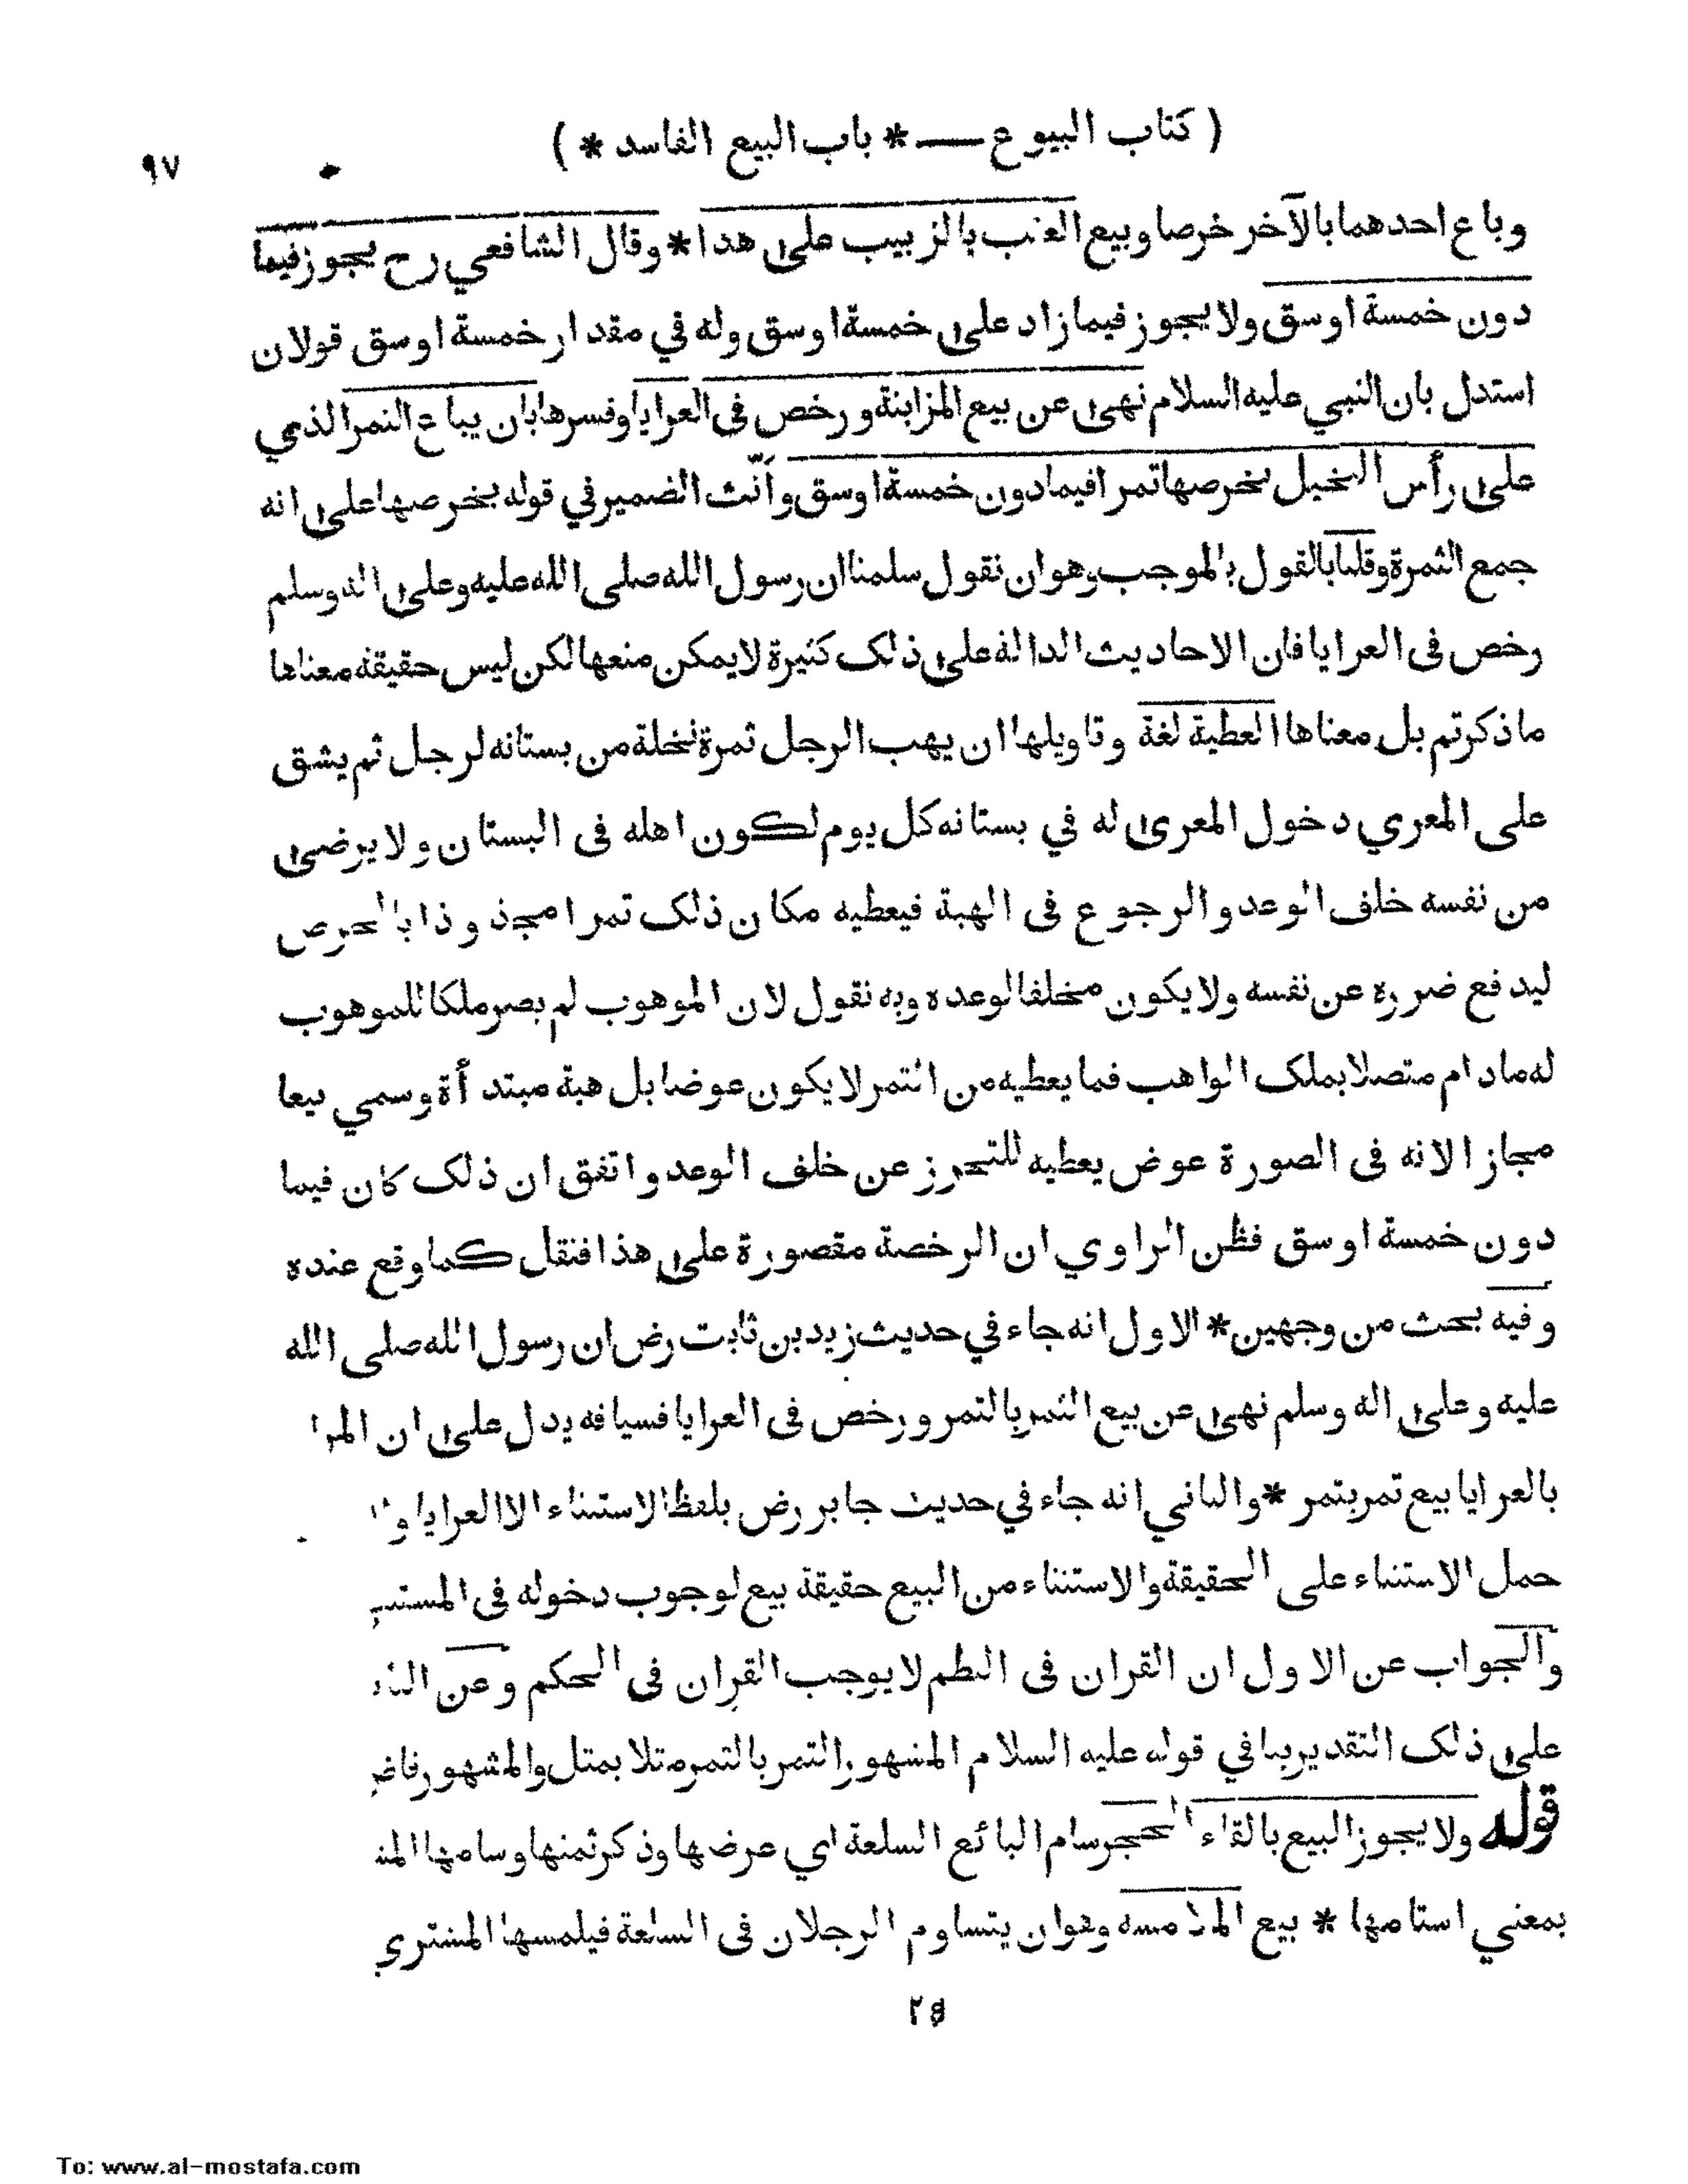 ( كتاب البيوع — * باب البيع الفاسد * )
٩٧
وباع احدهما بالآخر خرصا وبيع العنب بالزبيب على هذا * وقال الشافعي رح يجوز فيما
دون خمسة اوسق ولا يجوز فيما زاد على خمسة اوسق وله في مقدار خمسة اوسق قولان
استدل بان النبي عليه السلام نهى عن بيع المزابنة ورخص فى العرايا وفسرها بان يباع التمر الذي
على رأس النخيل بخرصها تمرا فيما دون خمسة اوسق وأنّث الضمير في قوله بخرصها على انه
جمع الثمرة وقلنا بالقول بالموجب وهو ان نقول سلمنا ان رسول الله صلى الله عليه وعلى اله وسلم
رخص فى العرايا فان الاحاديث الدالة على ذلك كثيرة لا يمكن منعها لكن ليس حقيقة معناها
ما ذكرتم بل معناها العطية لغة وتاويلها ان يهب الرجل ثمرة نخلة من بستانه لرجل ثم يشق
على المعري دخول المعرى له في بستانه كل يوم لكون اهله فى البستان ولا يرضى
من نفسه خلف الوعد والرجوع فى الهبة فيعطيه مكان ذلك تمرا مجذوذا بالخرص
ليدفع ضرره عن نفسه ولا يكون مخلفا لوعده وبه نقول لان الموهوب لم يصر ملكا للموهوب
له مادام متصلا بملك الواهب فما يعطيه من التمر لا يكون عوضا بل هبة مبتدأة وسمي بيعا
مجازا لانه فى الصورة عوض يعطيه للتحرز عن خلف الوعد واتفق ان ذلك كان فيما
دون خمسة اوسق فظن الراوي ان الرخصة مقصورة على هذا فنقل كما وقع عنده
وفيه بحث من وجهين * الاول انه جاء في حديث زيد بن ثابت رض ان رسول الله صلى الله
عليه وعلى اله وسلم نهى عن بيع التمر بالتمر ورخص فى العرايا فسياقه يدل على ان
بالعرايا بيع تمر بتمر * والثاني انه جاء في حديث جابر رض بلفظ الاستثناء الا العرايا
حمل الاستثناء على الحقيقة والاستثناء من البيع حقيقة بيع لوجوب دخوله فى
والجواب عن الاول ان القران فى النظم لا يوجب القران فى الحكم وعن
على ذلك التقدير ينافي قوله عليه السلام المشهور التمر بالتمر مثلا بمثل والمشهور
قوله ولا يجوز البيع بالقاء الحجر سام البائع السلعة اي عرضها وذكر ثمنها وسامها
بمعني استامها * بيع الملامسه وهو ان يتساوم الرجلان فى السلعة فيلمسها المشتري
٢٥
To: www.al-mostafa.com